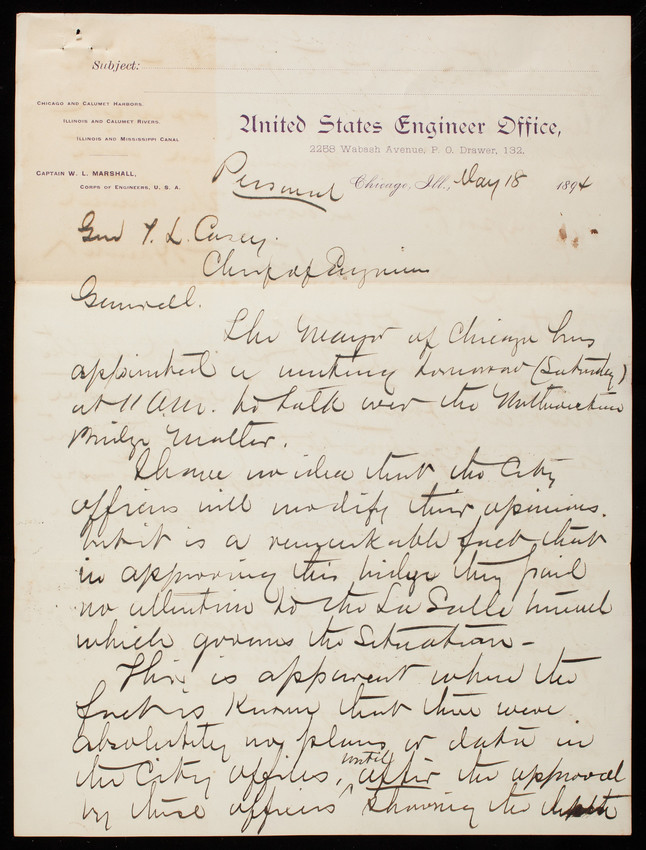 Subject:
CHICAGO AND CALUMET HARBORS.
ILLINOIS AND CALUMET RIVERS.
ILLINOIS AND MISSISSIPPI CANAL
CAPTAIN W. L. MARSHALL,
CORPS OF ENGINEERS, U. S. A.
United States Engineer Office,
2258 Wabash Avenue, P. O. Drawer, 132.
Personal
Chicago, Ill., May 18 1894
Genl T. L. Casey.
Chief of Engineers
General.
The Mayor of Chicago has
appointed a meeting tomorrow (Saturday)
at 11 A.M. to talk over the
Bridge Matter.
I have no idea that the City
officers will modify their opinions.
but it is a remarkable fact that
in approving this bridge they paid
no attention to the La Salle tunnel
which governs the situation -
This is apparent when the
fact is known that there were
absolutely no plans or data in
the City offices, until after the approval
by these officers showing the depth